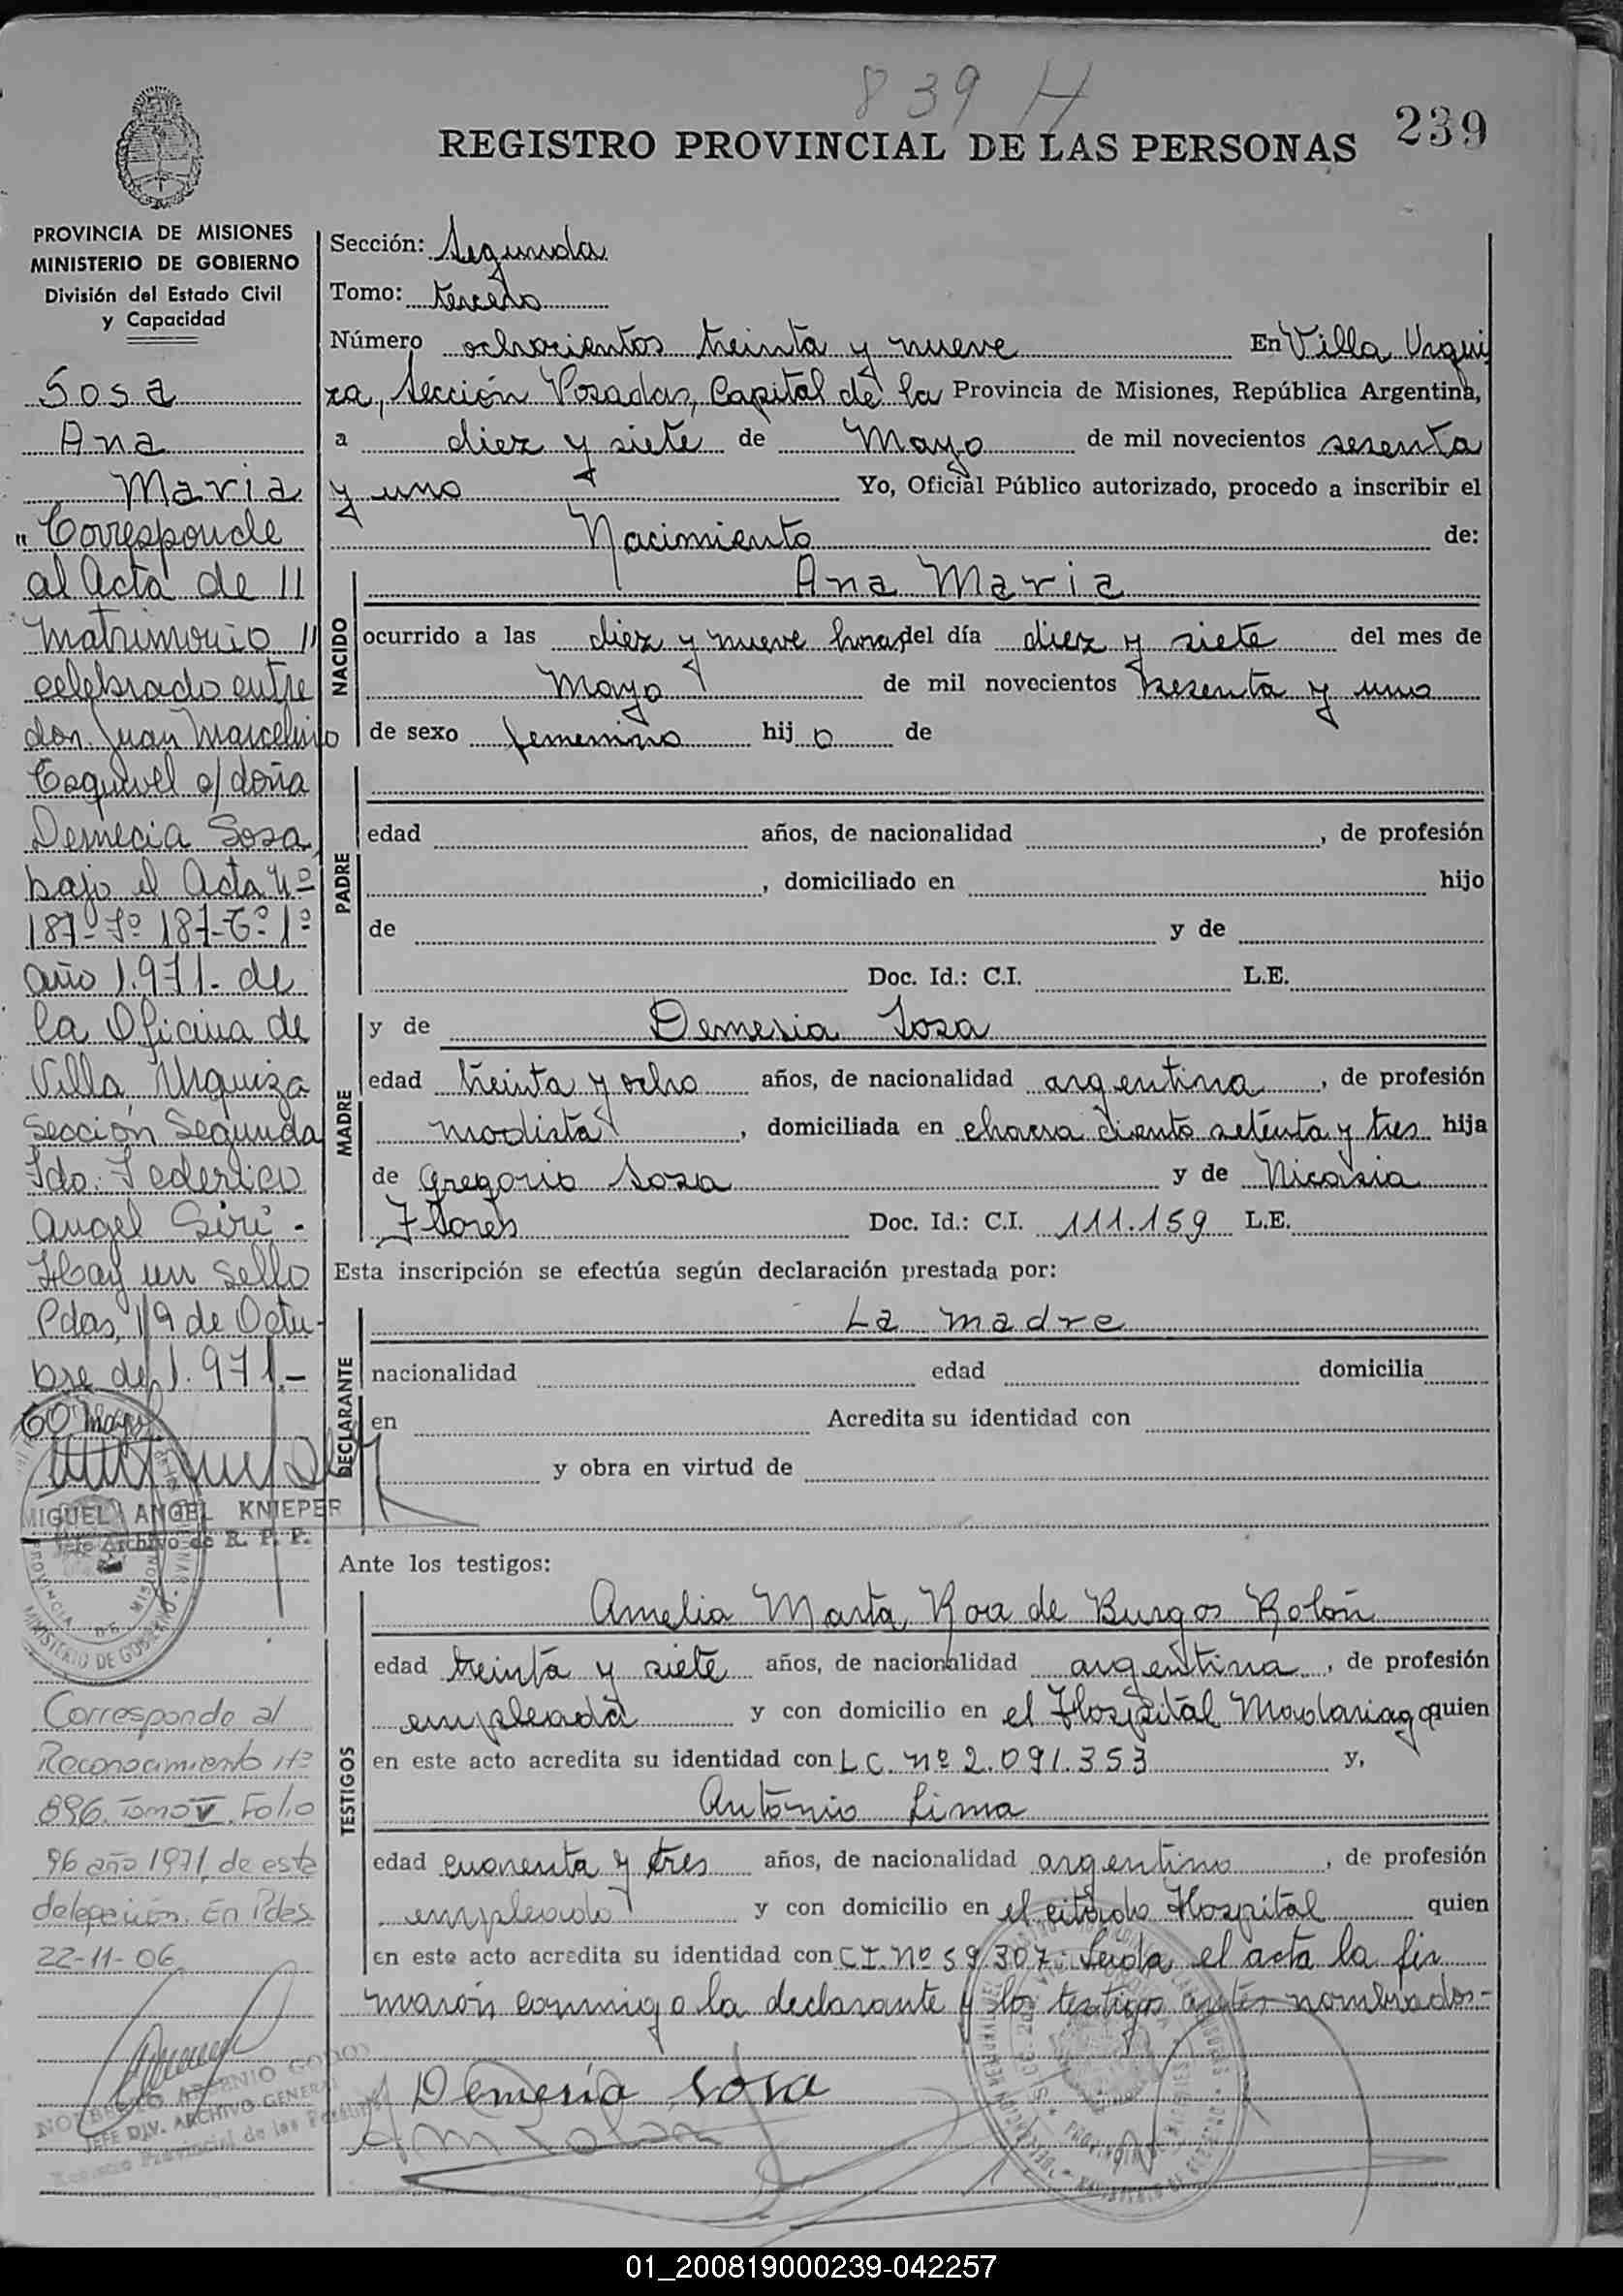 839 H
REGISTRO PROVINCIAL DE LAS PERSONAS 239
PROVINCIA DE MISIONES
MINISTERIO DE GOBIERNO
División del Estado Civil
y Capacidad
Sosa
Ana
Maria
"Corresponde
al Acta de //
Matrimonio //
celebrado entre
don Juan Marcelino
Esquivel c/ doña
Demecia Sosa,
bajo el Acta Nº
187-Fº 187-Tº 1º
año 1.971.- de
la Oficina de
Villa Urquiza
Sección Segunda
Fdo. Federico
Angel Siri -
Hay un sello
Pdas, 19 de Octu-
bre de 1.971.-
MIGUEL ANGEL KNIEPER
Jefe Archivo de R. P. P.
Corresponde al
Reconocimiento Nº
896. Tomo V. Folio
96 año 1971, de esta
delegación. En Pdas
22-11-06
NORBERTO ARSENIO GODOY
JEFE DIV. ARCHIVO GENERAL
Registro Provincial de las Personas
Sección: Segunda
Tomo: tercero
Número ochocientos treinta y nueve En Villa Urqui
za, Sección Posadas, Capital de la Provincia de Misiones, República Argentina,
a diez y siete de Mayo de mil novecientos sesenta
y uno Yo, Oficial Público autorizado, procedo a inscribir el
Nacimiento de:
NACIDO
Ana Maria
ocurrido a las diez y nueve horas del día diez y siete del mes de
Mayo de mil novecientos sesenta y uno
de sexo femenino hij o de
PADRE
edad años, de nacionalidad , de profesión
, domiciliado en hijo
de y de
Doc. Id.: C.I. L.E.
MADRE
y de Demesia Sosa
edad treinta y ocho años, de nacionalidad argentina , de profesión
modista , domiciliada en chacra ciento setenta y tres hija
de Gregorio Sosa y de Nicasia
Flores Doc. Id.: C.I. 111.159 L.E.
Esta inscripción se efectúa según declaración prestada por:
DECLARANTE
La madre
nacionalidad edad domicilia
en Acredita su identidad con
y obra en virtud de
Ante los testigos:
TESTIGOS
Amelia Marta Roa de Burgos Rolón
edad treinta y siete años, de nacionalidad argentina , de profesión
empleada y con domicilio en el Hospital Madariaga quien
en este acto acredita su identidad con L C. nº 2.091.353 y,
Antonio Lima
edad cuarenta y tres años, de nacionalidad argentino , de profesión
empleado y con domicilio en el citado Hospital quien
en este acto acredita su identidad con C I. Nº 59.307: Leida el acta la fir
maron conmigo la declarante y los testigos antes nombrados-
Demesia Sosa
01_200819000239-042257